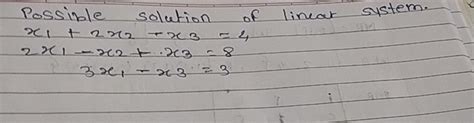 Possible solution of linear system.
x1 + 2x2 - x3 = 4
2x1 - x2 + x3 = 8
3x1 - x3 = 3